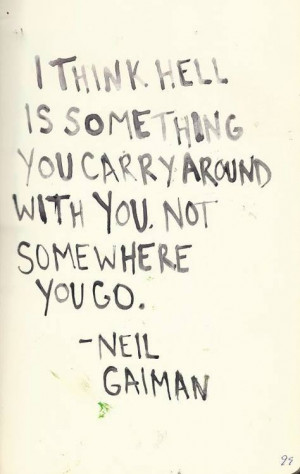 I THINK HELL
IS SOMETHING
YOU CARRY AROUND
WITH YOU. NOT
SOMEWHERE
YOU GO.
-NEIL
GAIMAN